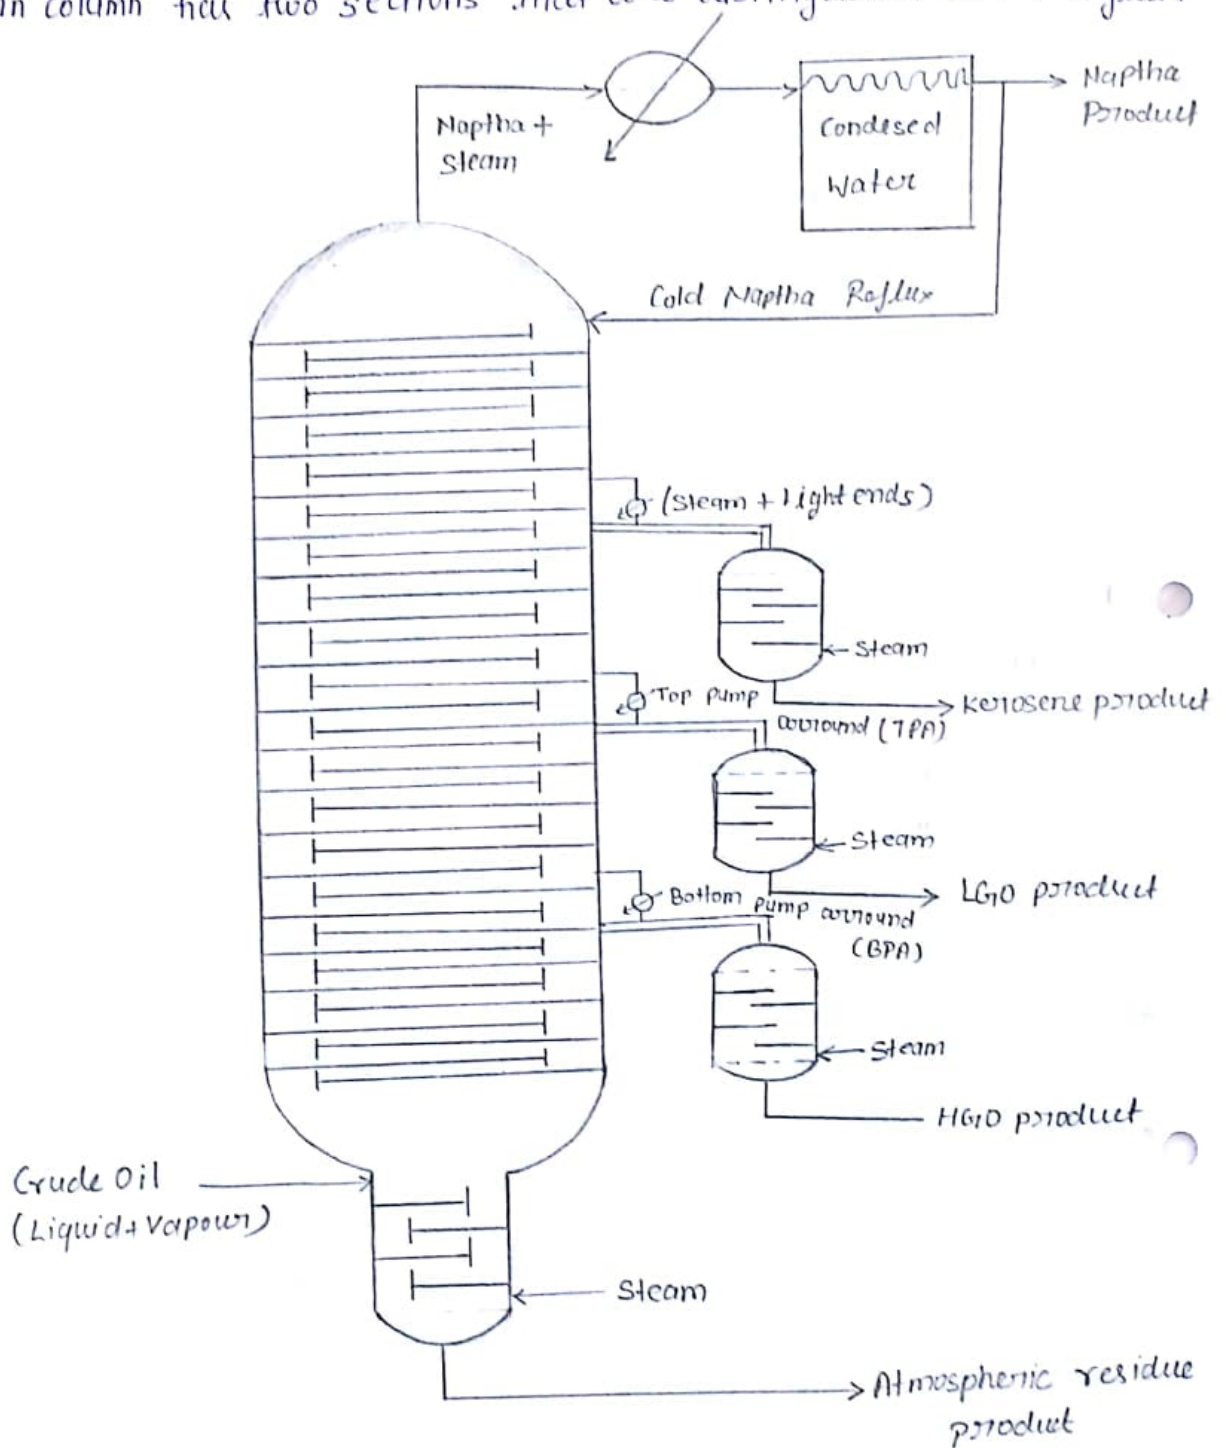 column has two sections
Naptha +
Steam
Condesed
Water
Naptha
Product
Cold Naptha Reflux
(Steam + Light ends)
Steam
Kerosene product
Top pump
arround (TPA)
Steam
LGO product
Bottom pump arround
(BPA)
Steam
HGO product
Crude Oil
(Liquid+Vapour)
Steam
Atmospheric residue
product